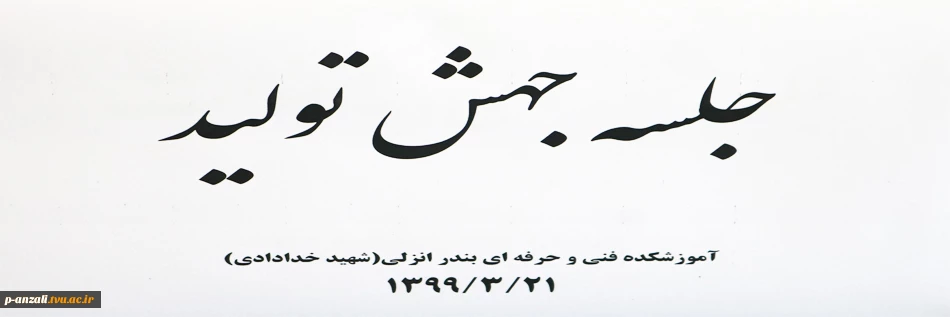 جلسه جهش تولید
آموزشکده فنی و حرفه ای بندر انزلی(شهید خدادادی)
۱۳۹۹/۳/۲۱
p-anzali.tvu.ac.ir